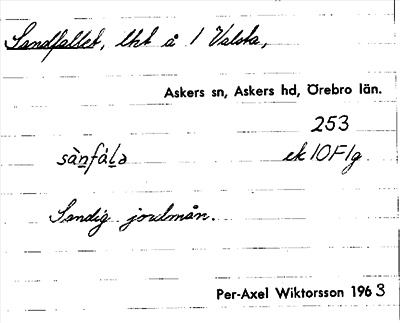 Sandfallet, lht å 1 Valsta,
Askers sn, Askers hd, Örebro län.
253
sànfáḷə ek 10F1g
Sandig jordmån.
Per-Axel Wiktorsson 1963